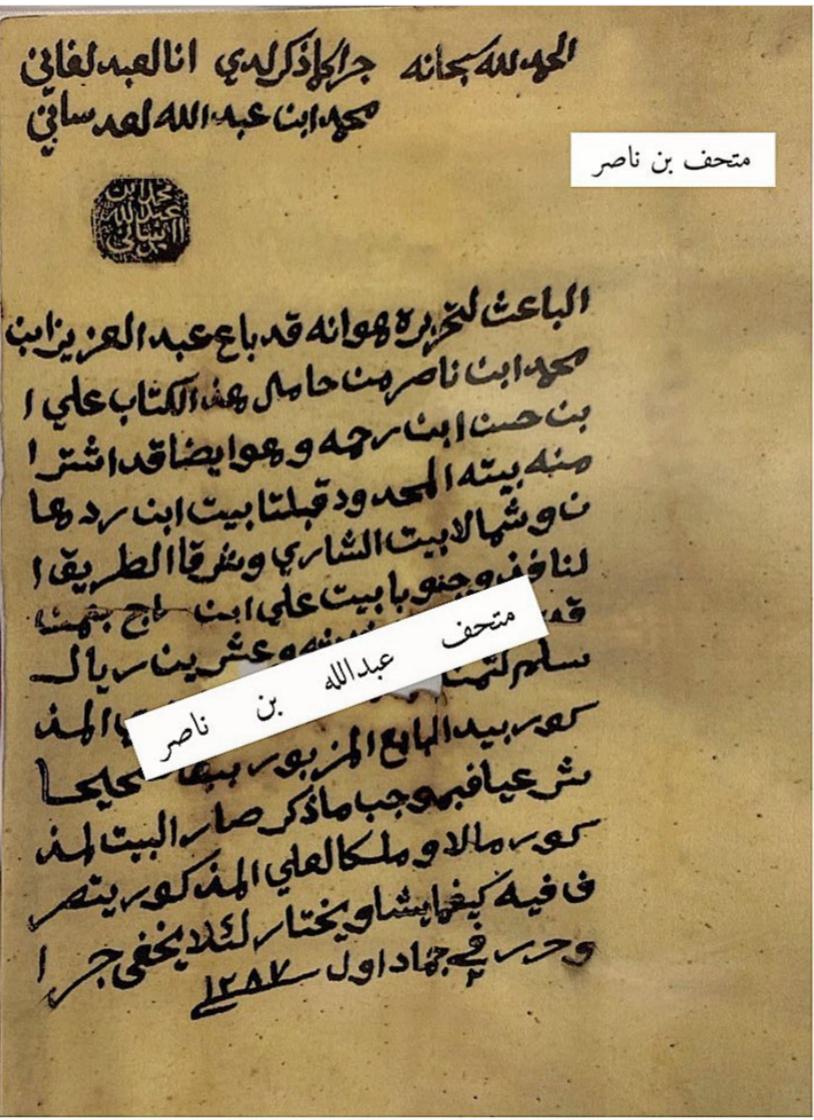 الحمد لله سبحانه
جرا كما ذكر لدي انا لعبد لفاني
محمد ابن عبد الله لعدساني
متحف بن ناصر
محمد ابن
عبد الله
الباعث لتحريره هو انه قد باع عبد العزيز ابن
محمد ابن ناصر من حامل هذ الكتاب علي ا
بن حسن ابن رحمه وهو ايضا قد اشترا
منه بيته المحدود قبلتا بيت ابن ردها
ن وشمالا بيت الشاري وشرقا الطريق ا
لنافذ وجنوبا بيت علي ابن بثمن
قد وعشرين ريال
سلم لثمن المذ
متحف عبدالله بن ناصر
كور بيد البايع المزبور بيعا صحيحا
شرعيا فبموجب ما ذكر صار البيت لمذ
كور مالا وملكا لعلي المذكور يتصر
ف فيه كيفما يشا ويختار لئلا يخفى جرا
وحرر في جماد اول ١٢٨٧